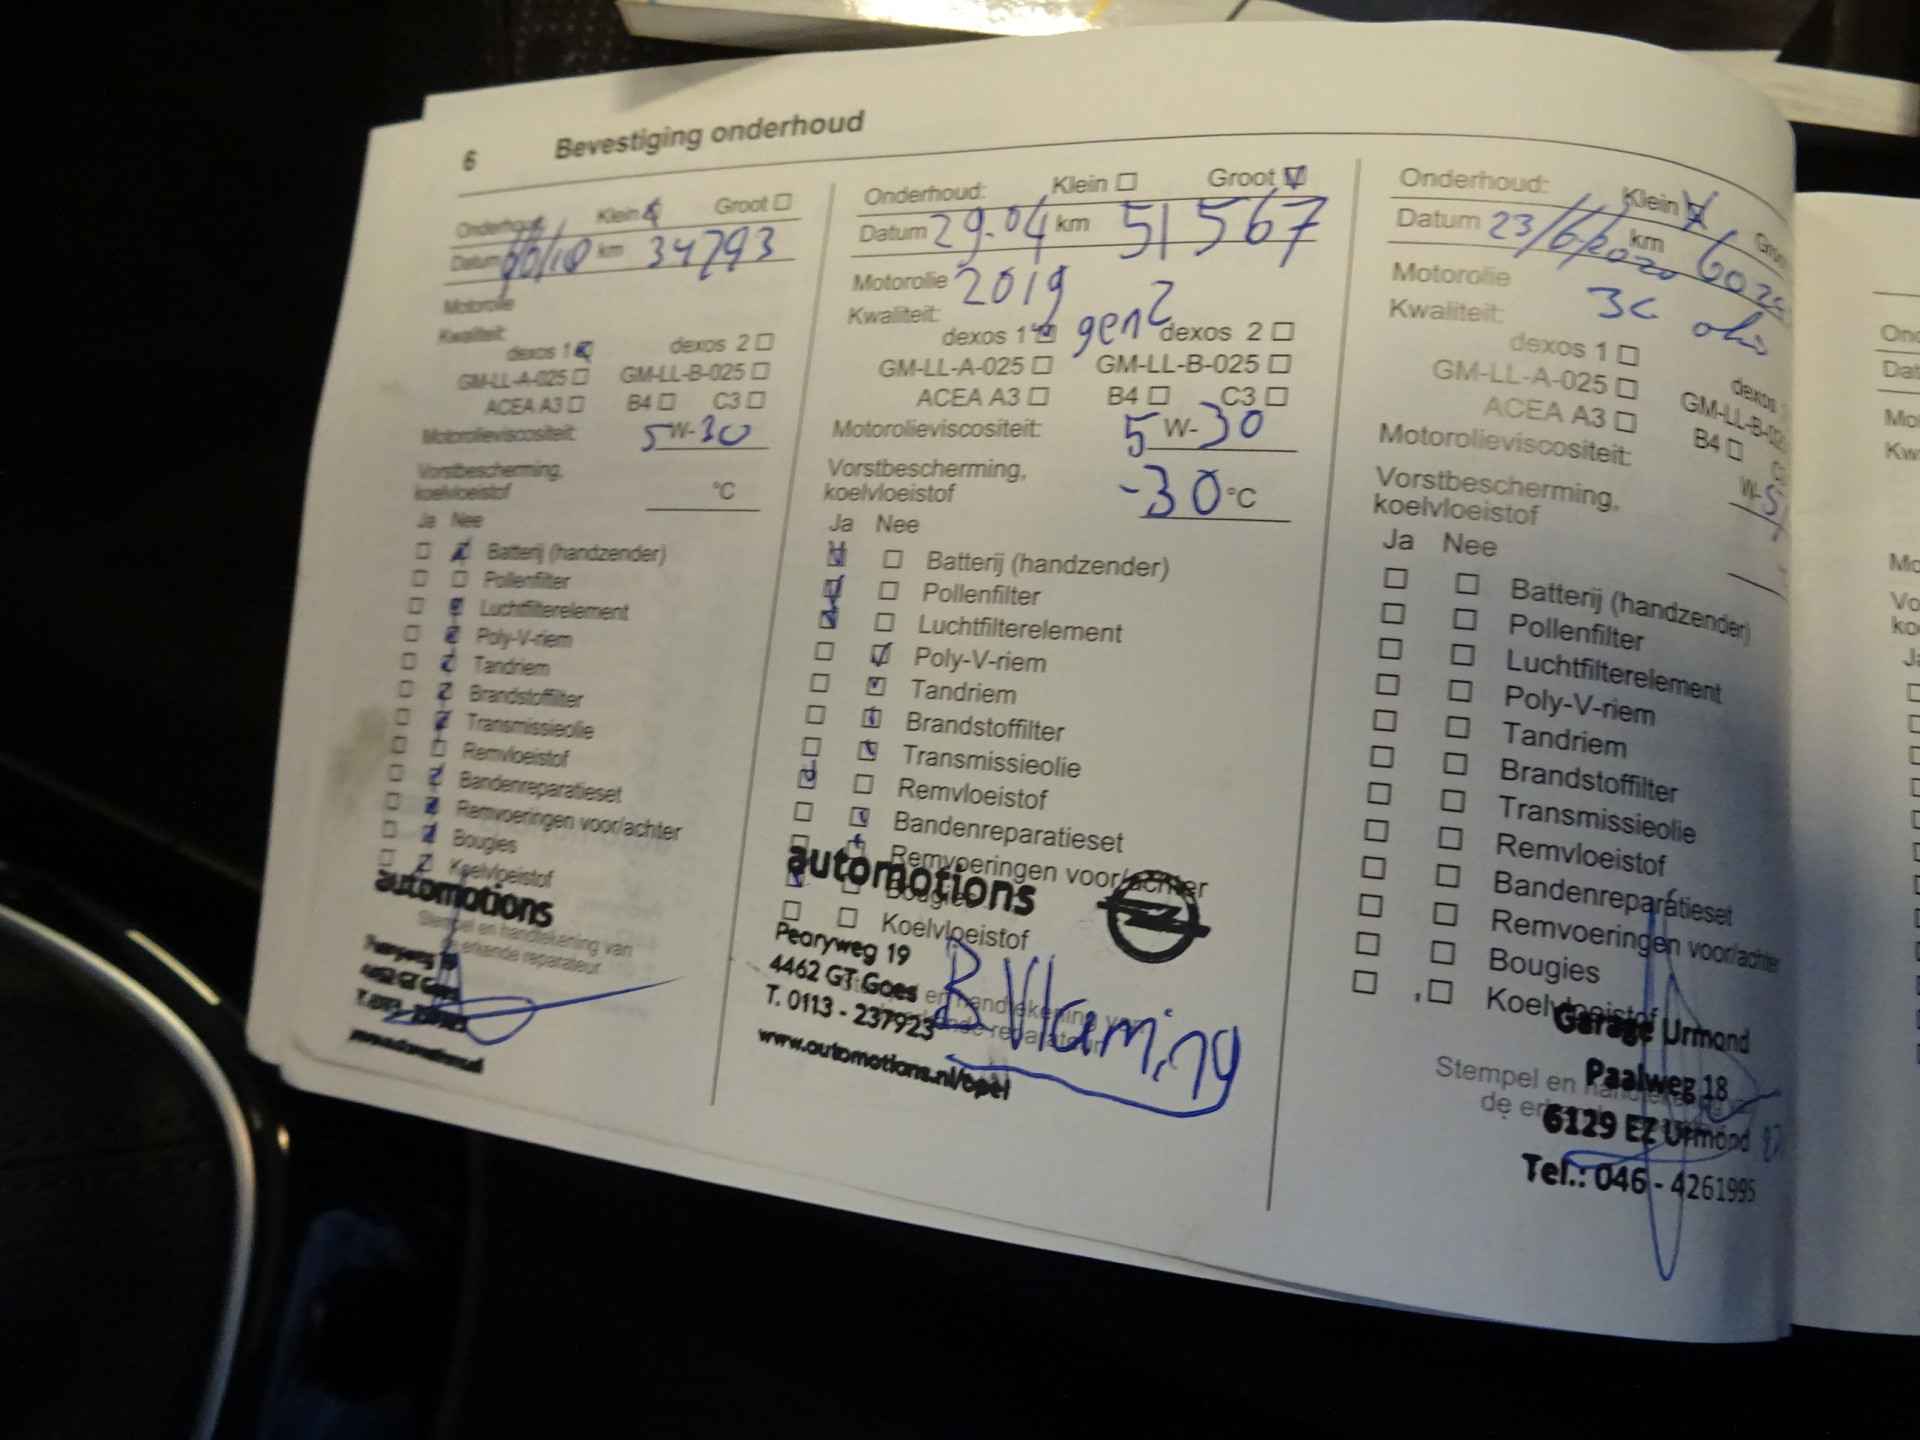 6 Bevestiging onderhoud
Onderhoud: Klein Groot
Datum km 34793
Motorolie
Kwaliteit:
dexos 1 dexos 2
GM-LL-A-025 GM-LL-B-025
ACEA A3 B4 C3
Motorolieviscositeit: 5 W-30
Vorstbescherming,
koelvloeistof °C
Ja Nee
Batterij (handzender)
Pollenfilter
Luchtfilterelement
Poly-V-riem
Tandriem
Brandstoffilter
Transmissieolie
Remvloeistof
Bandenreparatieset
Remvoeringen voor/achter
Bougies
Koelvloeistof
automotions
Stempel en handtekening van
de erkende reparateur
Pearyweg 19
4462 GT Goes
T. 0113 - 237923
www.automotions.nl
Onderhoud: Klein Groot
Datum 29-04 km 51567
Motorolie 2019
Kwaliteit:
dexos 1 gen2 dexos 2
GM-LL-A-025 GM-LL-B-025
ACEA A3 B4 C3
Motorolieviscositeit: 5 W-30
Vorstbescherming,
koelvloeistof -30 °C
Ja Nee
Batterij (handzender)
Pollenfilter
Luchtfilterelement
Poly-V-riem
Tandriem
Brandstoffilter
Transmissieolie
Remvloeistof
Bandenreparatieset
Remvoeringen voor/achter
Bougies
Koelvloeistof
automotions
Pearyweg 19
4462 GT Goes
en handtekening van
T. 0113 - 237923
www.automotions.nl/opel
B Vlaming
Onderhoud: Klein
Datum 23/6/2020 km
Motorolie
Kwaliteit:
dexos 1 dexos
GM-LL-A-025 GM-LL-B-025
ACEA A3 B4
Motorolieviscositeit: W-
Vorstbescherming,
koelvloeistof
Ja Nee
Batterij (handzender)
Pollenfilter
Luchtfilterelement
Poly-V-riem
Tandriem
Brandstoffilter
Transmissieolie
Remvloeistof
Bandenreparatieset
Remvoeringen voor/achter
Bougies
Koelvloeistof
Garage Urmond
Stempel en
Paalweg 18
6129 EZ Urmond
Tel.: 046 - 4261995